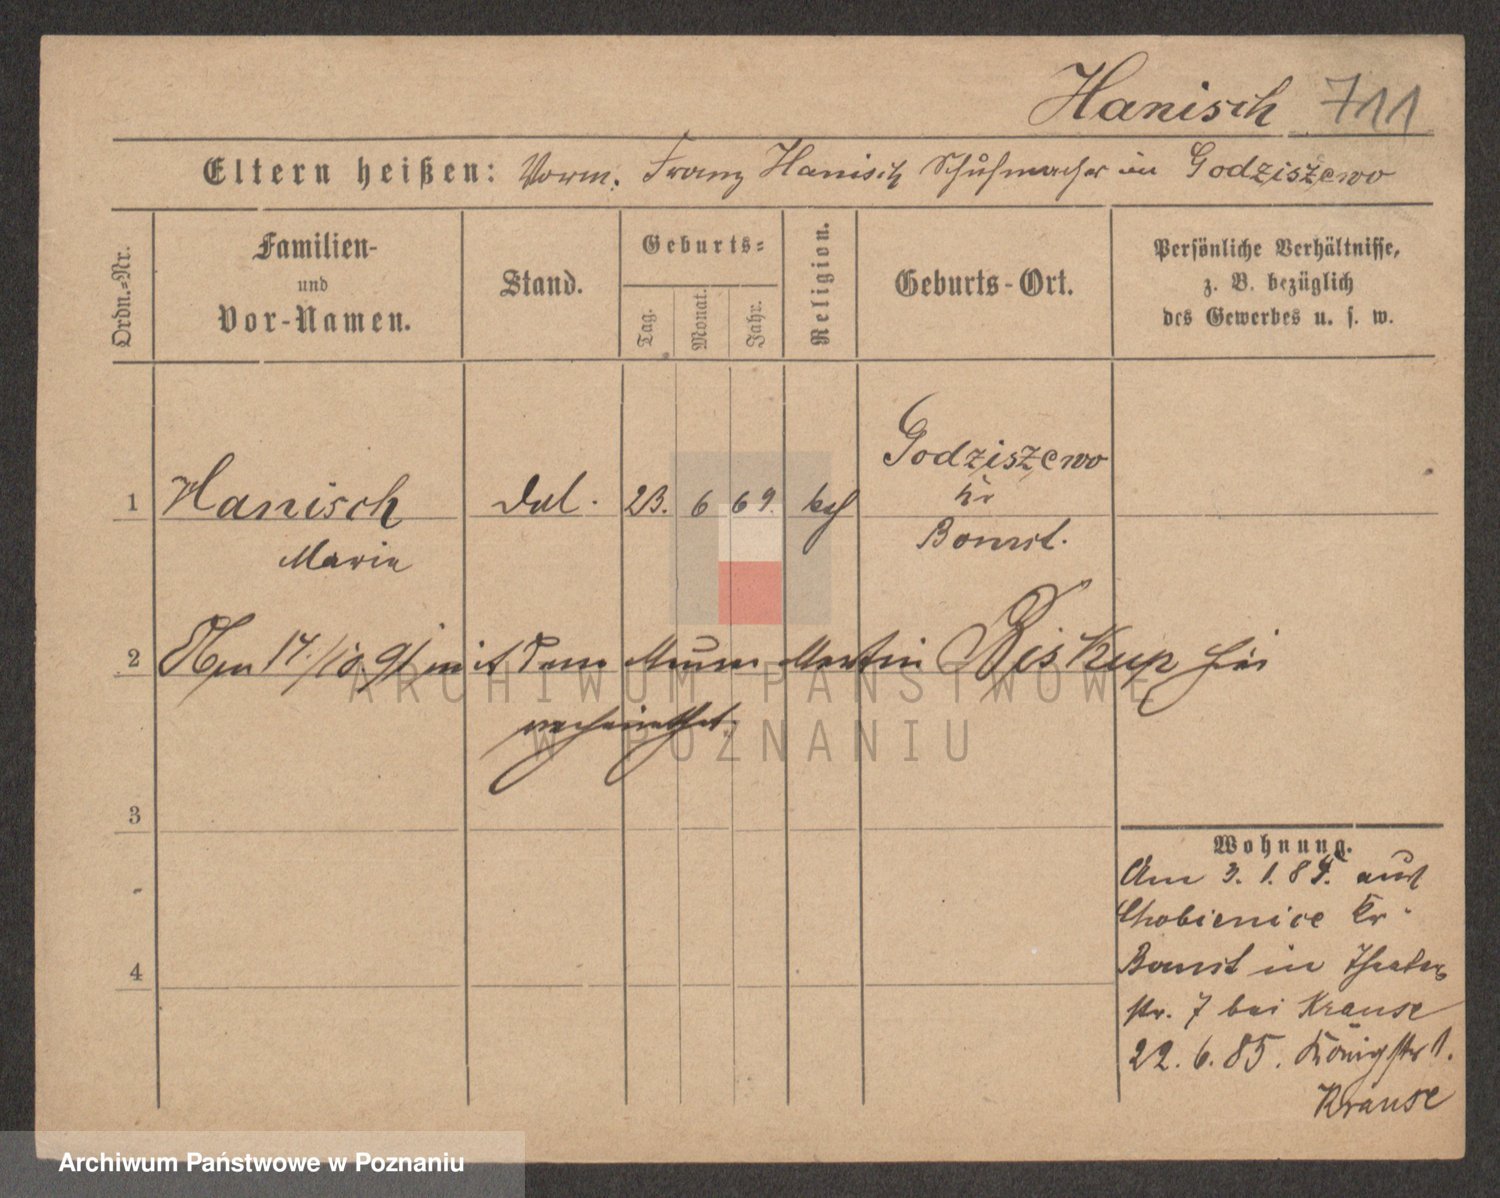 Hanisch 711
Eltern heißen: Vorm. Franz Hanisch Schuhmacher in Godziszewo
Ordn.=Nr.
Familien- und Vor-Namen.
Stand.
Geburts=
Tag.
Monat.
Jahr.
Religion.
Geburts-Ort.
Persönliche Verhältnisse,
z. B. bezüglich
des Gewerbes u. s. w.
Godziszewo
1 Hanisch 23. 6 69. kth
Kr
Marie
Bomst.
2 Am 17./10 91 mit dem Maurer Martin Biskup hier
verheirathet.
3
Wohnung.
Am 3. 1. 85. aus
Chobienice Kr
4
Bomst in Theater
str. 7 bei Krause
22. 6. 85. Königstr 1.
Krause
ARCHIWUM PAŃSTWOWE
W POZNANIU
Archiwum Państwowe w Poznaniu